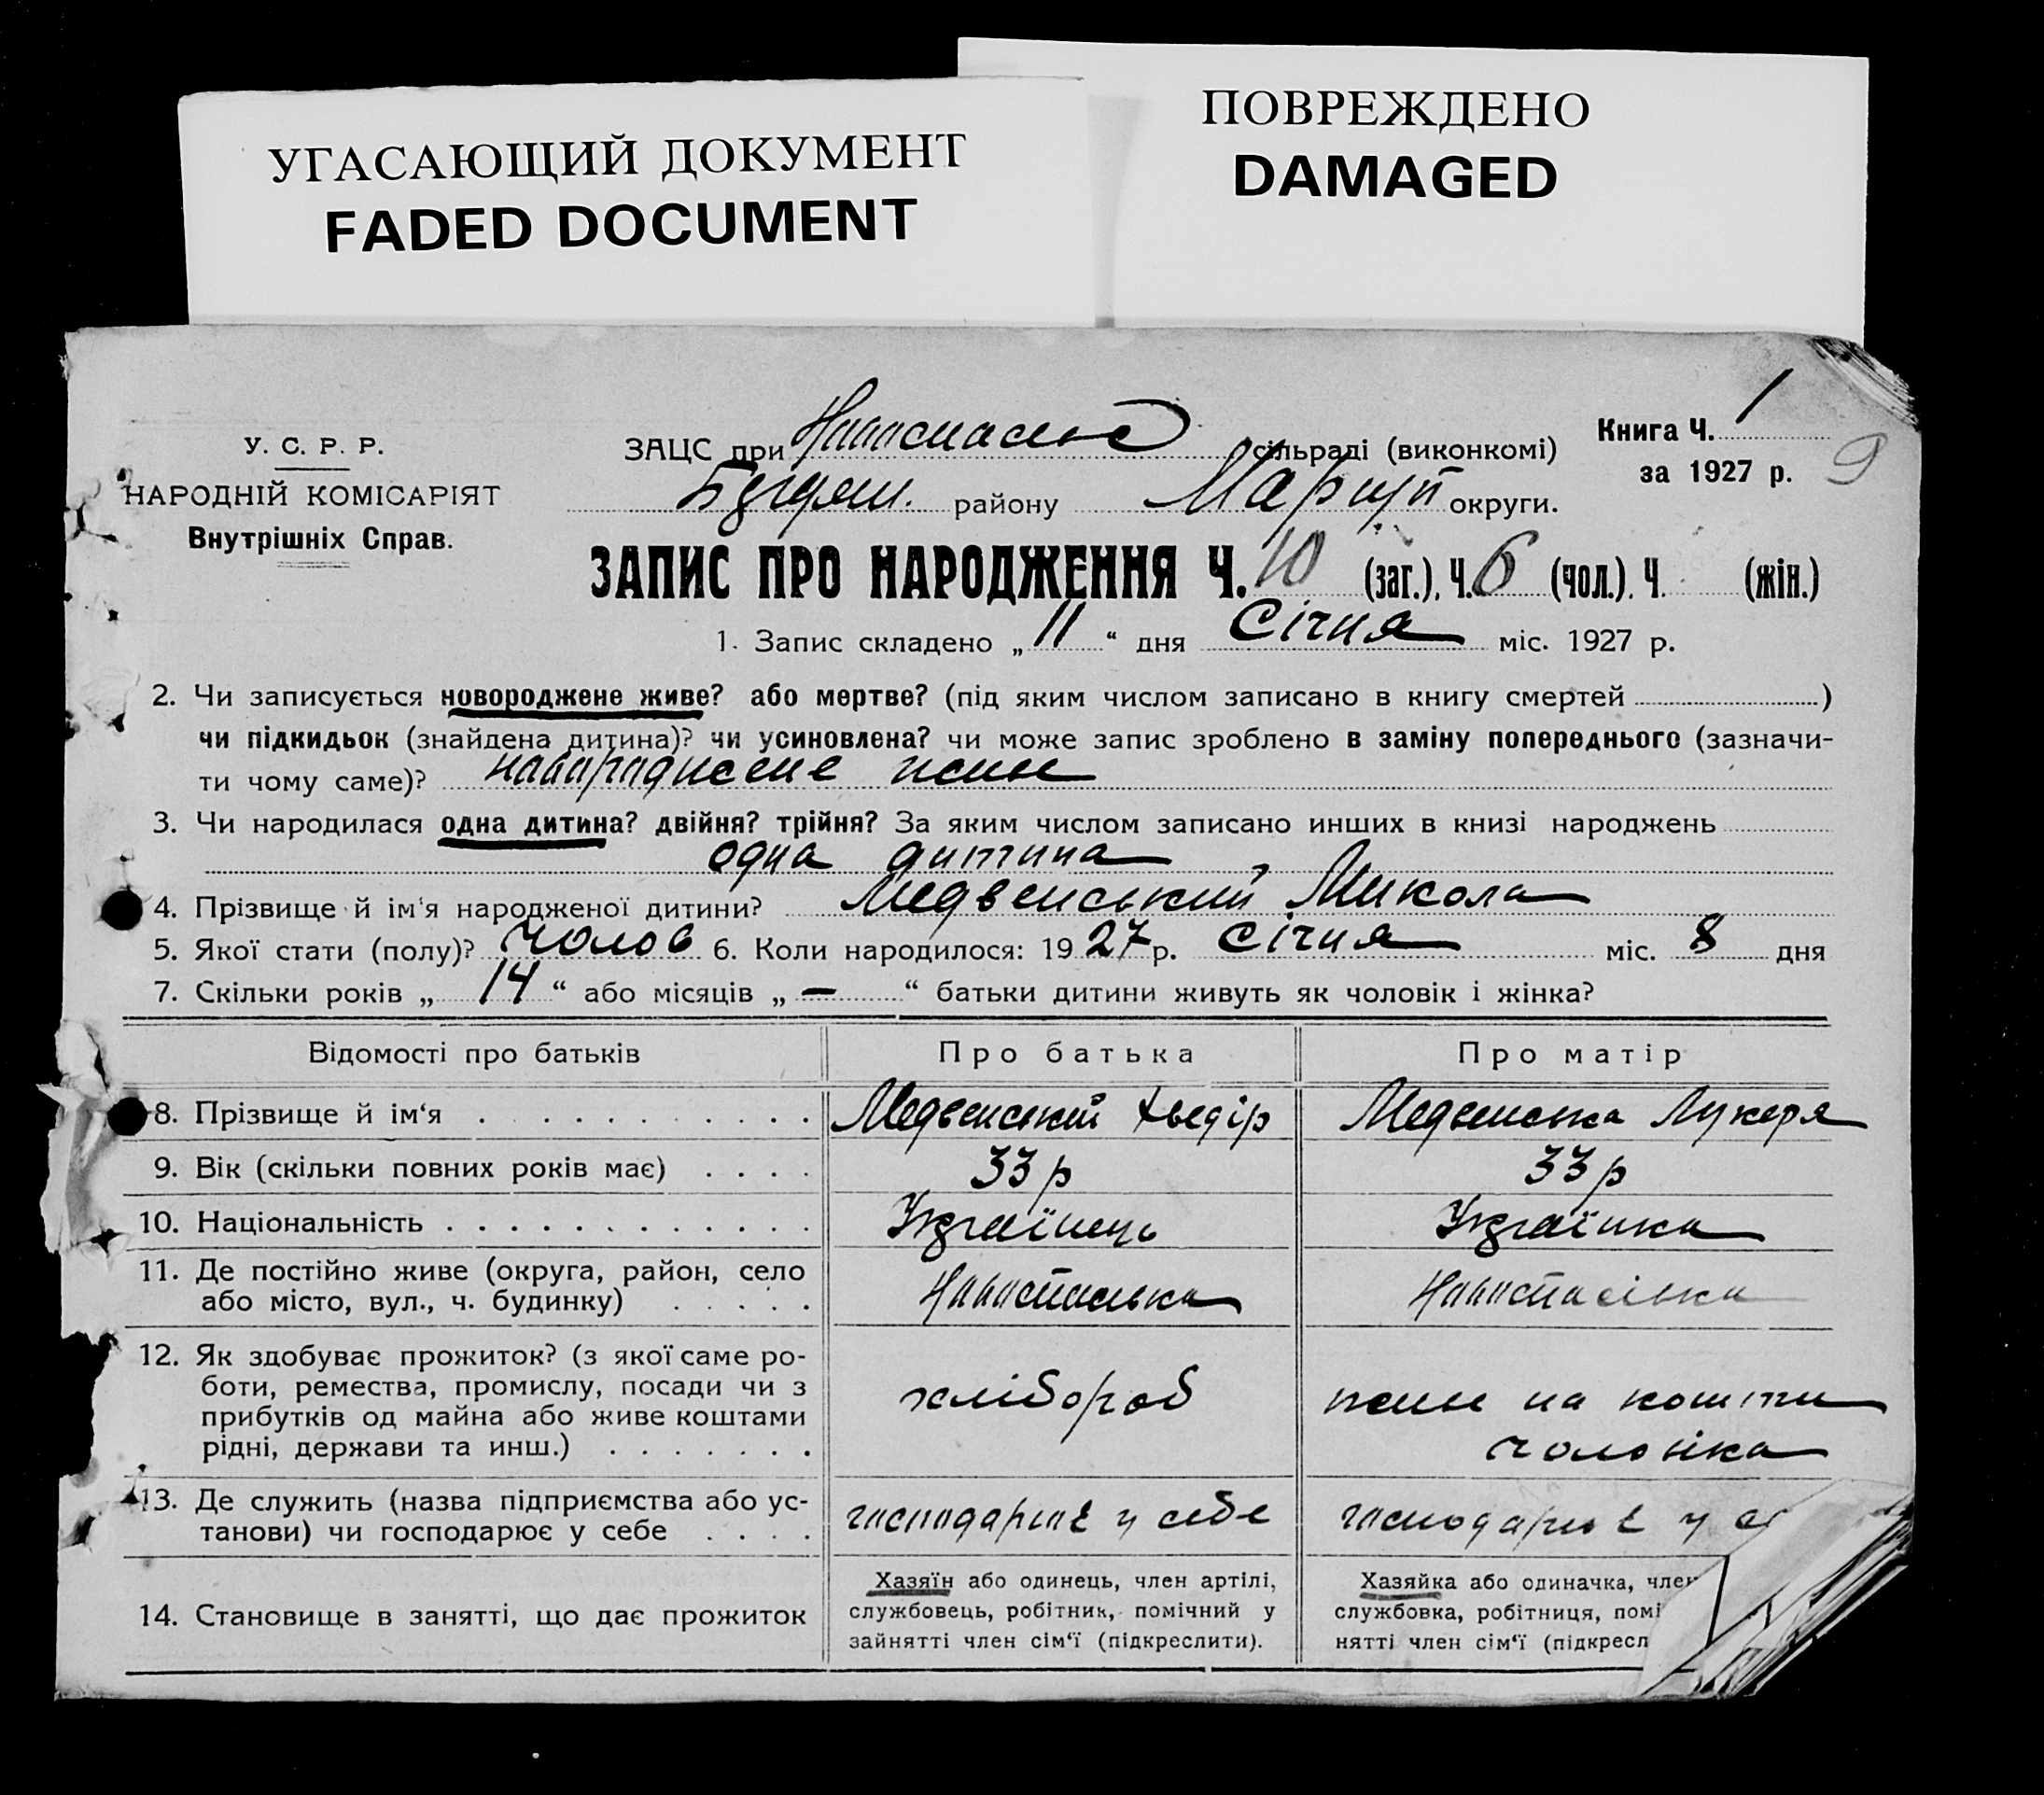 УГАСАЮЩИЙ ДОКУМЕНТ
FADED DOCUMENT
ПОВРЕЖДЕНО
DAMAGED
У. С. Р. Р.
НАРОДНІЙ КОМІСАРІЯТ
Внутрішніх Справ.
ЗАЦС при сільраді (виконкомі)
району Маріуп округи.
Книга Ч. 1
за 1927 р.
9
ЗАПИС ПРО НАРОДЖЕННЯ Ч. 10 (заг.), Ч. 6 (чол.). Ч. (жін.)
1. Запис складено „ 11 “ дня Січня міс. 1927 р.
2. Чи записується новороджене живе? або мертве? (під яким числом записано в книгу смертей )
чи підкидьок (знайдена дитина)? чи усиновлена? чи може запис зроблено в заміну попереднього (зазначи-
ти чому саме)?
3. Чи народилася одна дитина? двійня? трійня? За яким числом записано инших в книзі народжень
одна дитина
4. Прізвище й ім'я народженої дитини? Медвенський Микола
5. Якої стати (полу)? чолов 6. Коли народилося: 19 27 р. Січня міс. 8 дня
7. Скільки років „ 14 “ або місяців „ — “ батьки дитини живуть як чоловік і жінка?
Відомості про батьків Про батька Про матір
8. Прізвище й ім‘я Медвенський Хведір Медвенська Лукеря
9. Вік (скільки повних років має) 33 р 33 р
10. Національність Українець Українка
11. Де постійно живе (округа, район, село
або місто, вул., ч. будинку)
12. Як здобуває прожиток? (з якої саме ро-
боти, ремества, промислу, посади чи з
прибутків од майна або живе коштами
рідні, держави та инш.)
хлібороб
живе на кошти
чоловіка
13. Де служить (назва підприємства або ус-
танови) чи господарює у себе
господарює у себе
господарює у
14. Становище в занятті, що дає прожиток
Хазяїн або одинець, член артілі,
службовець, робітник, помічний у
зайнятті член сім‘ї (підкреслити).
Хазяйка або одиначка, член
службовка, робітниця, помі
нятті член сім‘ї (підкресл